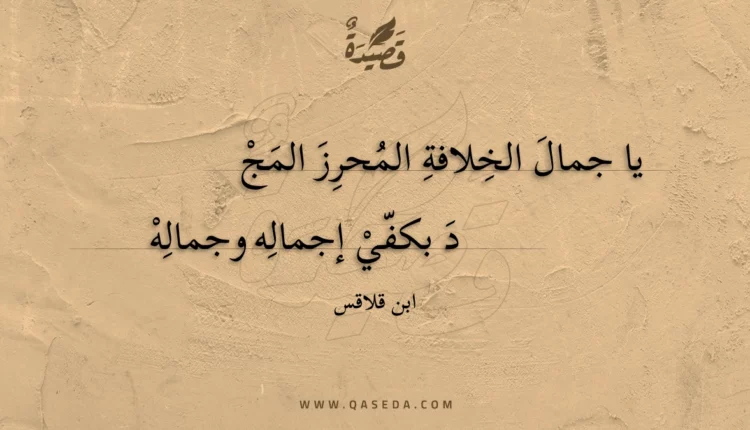 قَصِيْدَةٌ
يا جمالَ الخِلافةِ المُحرِزَ المَجْ
دَ بكفّيْ إجمالِه وجمالِهْ
ابن قلاقس
WWW.QASEDA.COM